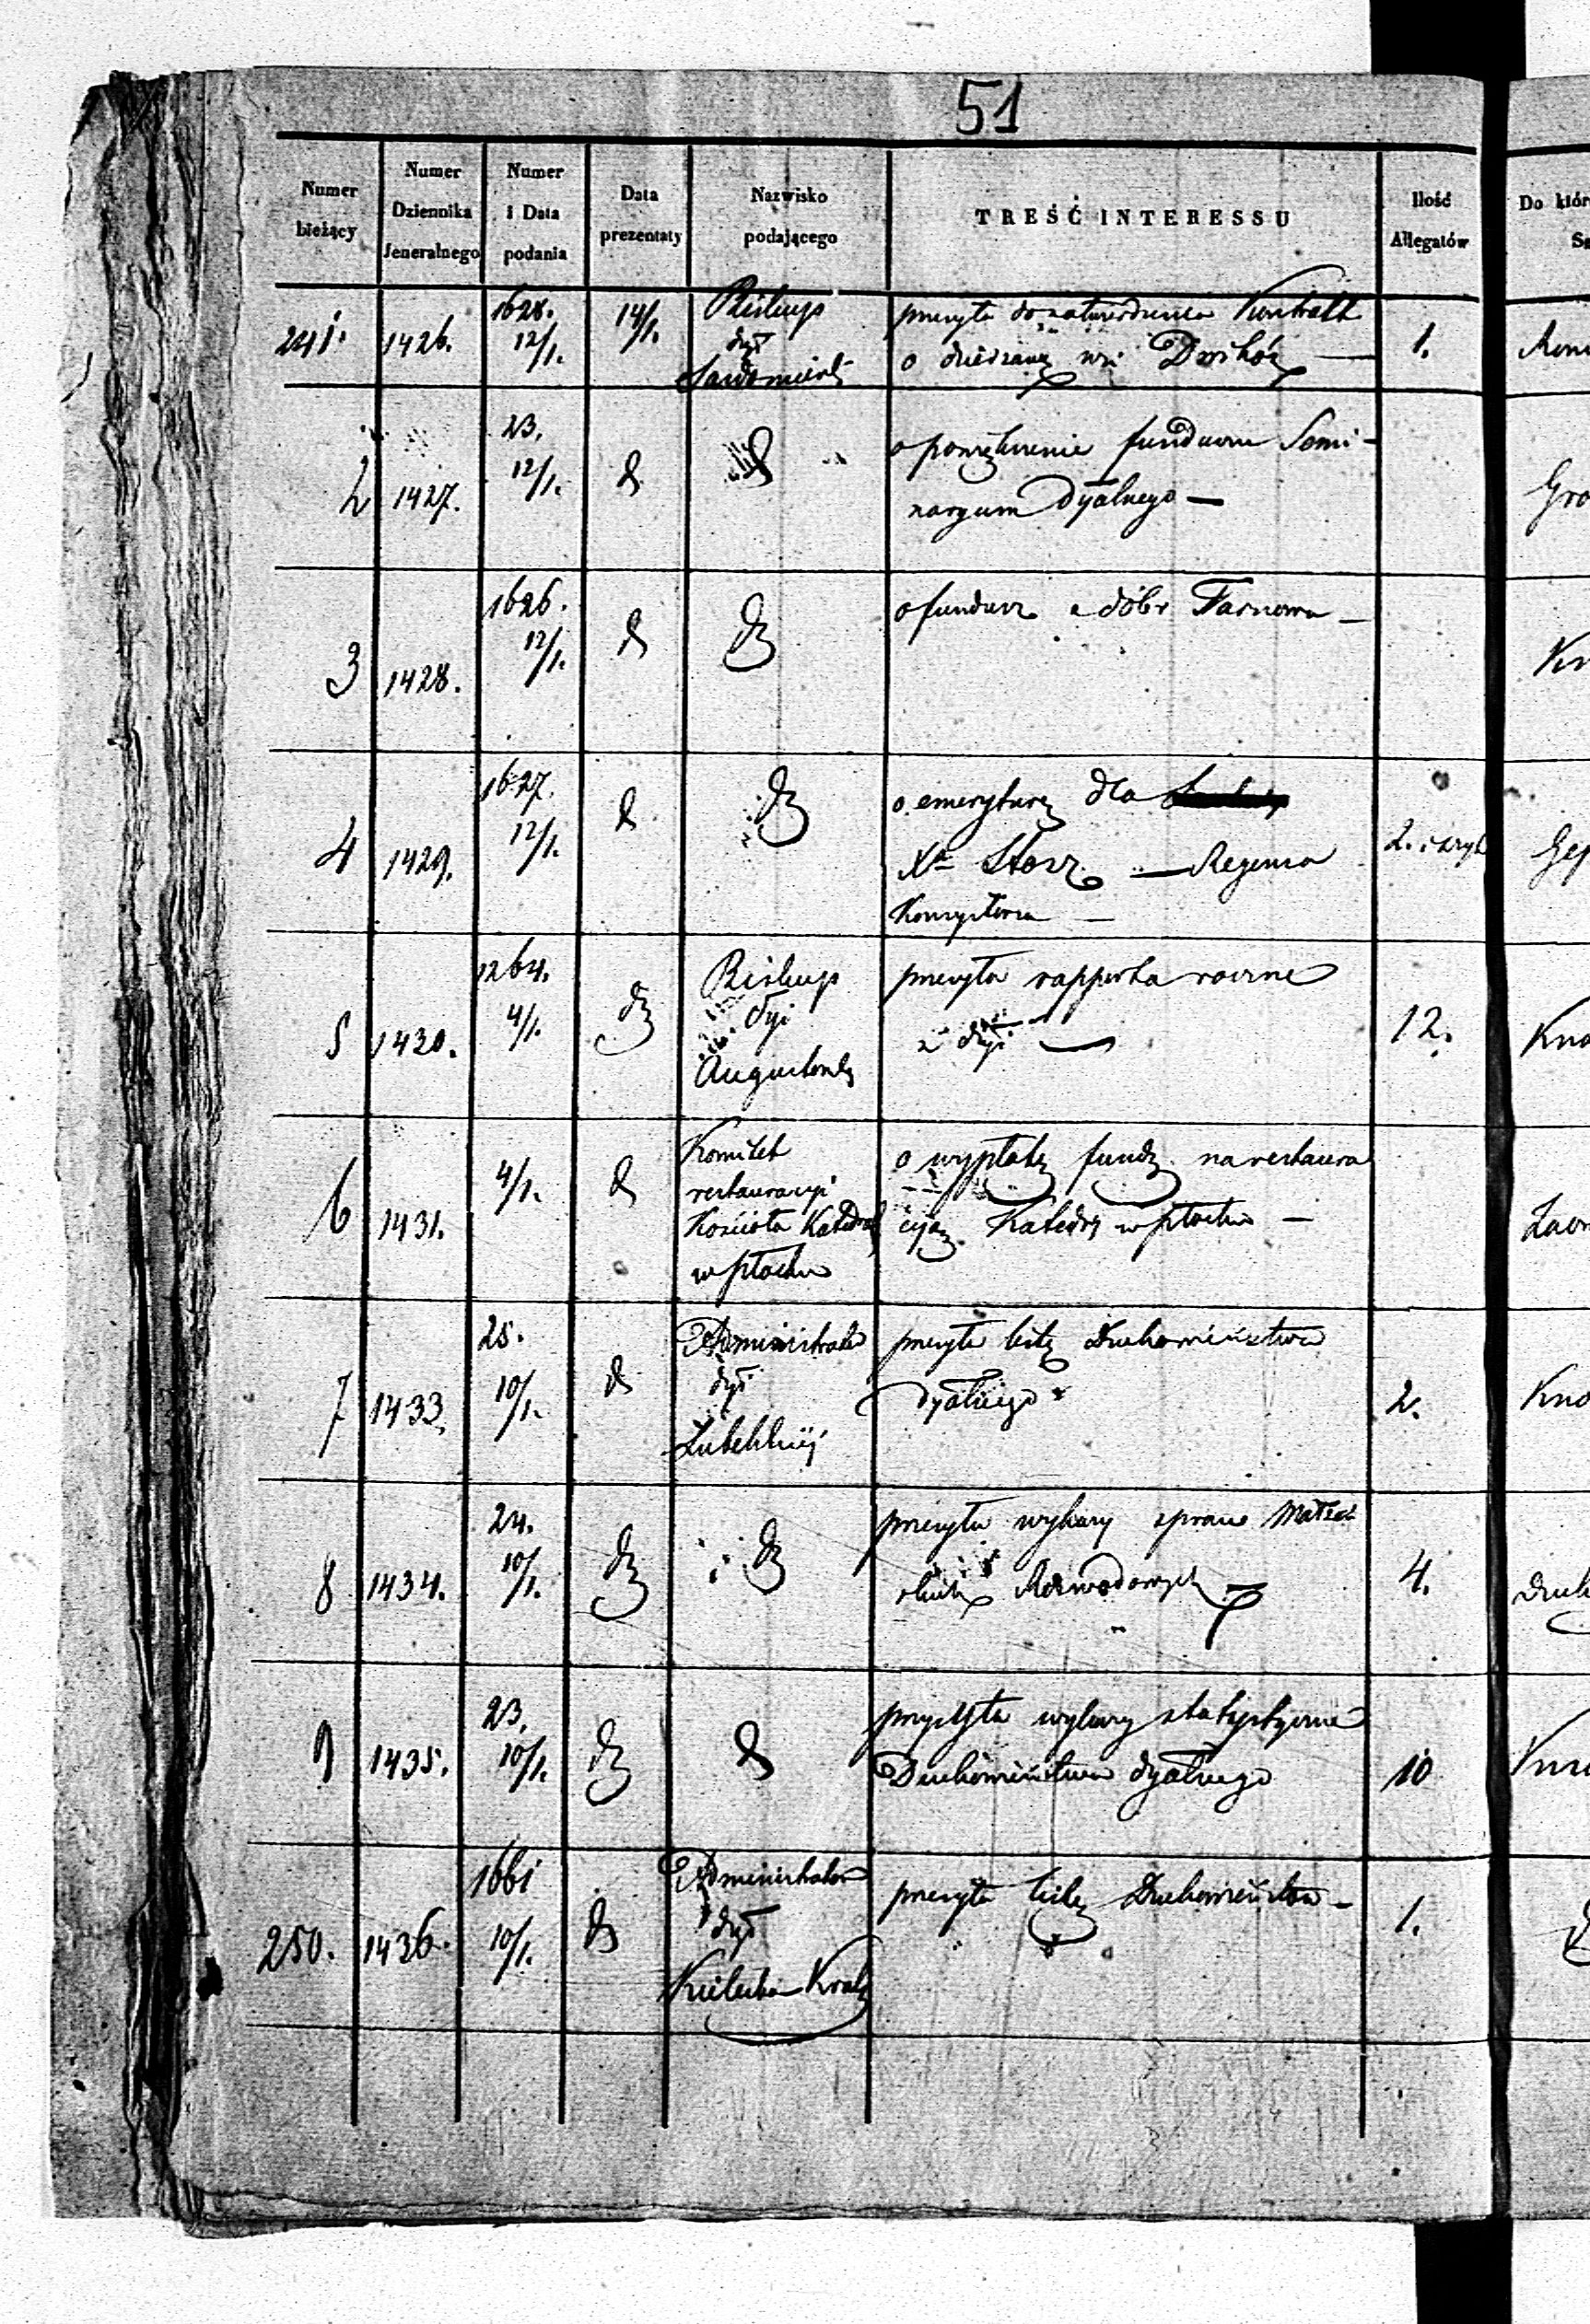 51
Numer bieżący
Numer Dziennika Jeneralnego
Numer i Data podania
Data prezentaty
Nazwisko podającego
TREŚĆ INTERESSU
Ilość Allegatów
Do któr
241. 1426. 1628. 12/1. 14/1. Biskup dyi Sandomierski
przesyła do zatwierdzenia Kontrakt
o dzierżawę wsi Dwikóz —
1.
2 1427. 23. 12/1. d
o powiększenie funduszu Semi-
naryum Dyalnego —
Gro
3 1428. 1626. 12/1. d
o fundusz z dóbr Tarnowa —
4 1429. 1627. 12/1. d
o emeryturę dla
Xa — Regensa
Konsystorza —
2.
5 1430. 1264. 4/1. Biskup Dyi Augustowski
przesyła rapporta roczne
z dyi —
12.
Kno
6 1431. 4/1. d Komitet restauracyi Kościoła Katedral w Płocku
o wypłatę fundz na restaura
cyą Katedry w Płocku —
7 1433. 25. 10/1. d Administrator dyi Lubelskiej
przesyła listę Duchowieństwa
Dyalnego
2.
Kno
8 1434. 24. 10/1.
przesyła wykazy spraw Małżeń
skich Rozwodowych
4.
9 1435. 23. 10/1. d
przysyła wykazy statystyczne
Duchowieństwa dyalnego
10
250. 1436. 1661 10/1. Administrator dyi Kielecko Krak
przesyła listę Duchowieństwa —
1.